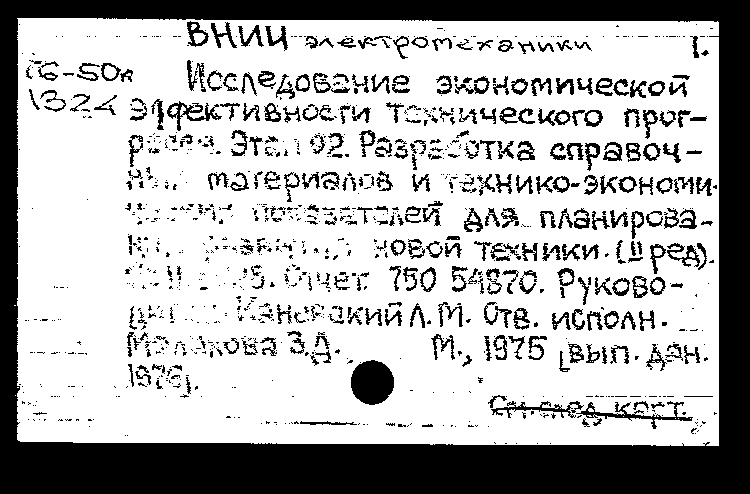 ВНИИ электромеханики 1.
Г6-50к Исследование экономической
1324 эффективности технического прог-
ресса. Этап 02. Разработка справоч-
ных материалов и технико-экономи-
ческих показателей для планирова-
ния развития новой техники. (II ред).
Отчет. 750 54870. Руково-
дитель Л.М. Отв. исполн.
Малахова З.Д. М., 1975 [вып. дан.
1976].
См. след. карт.